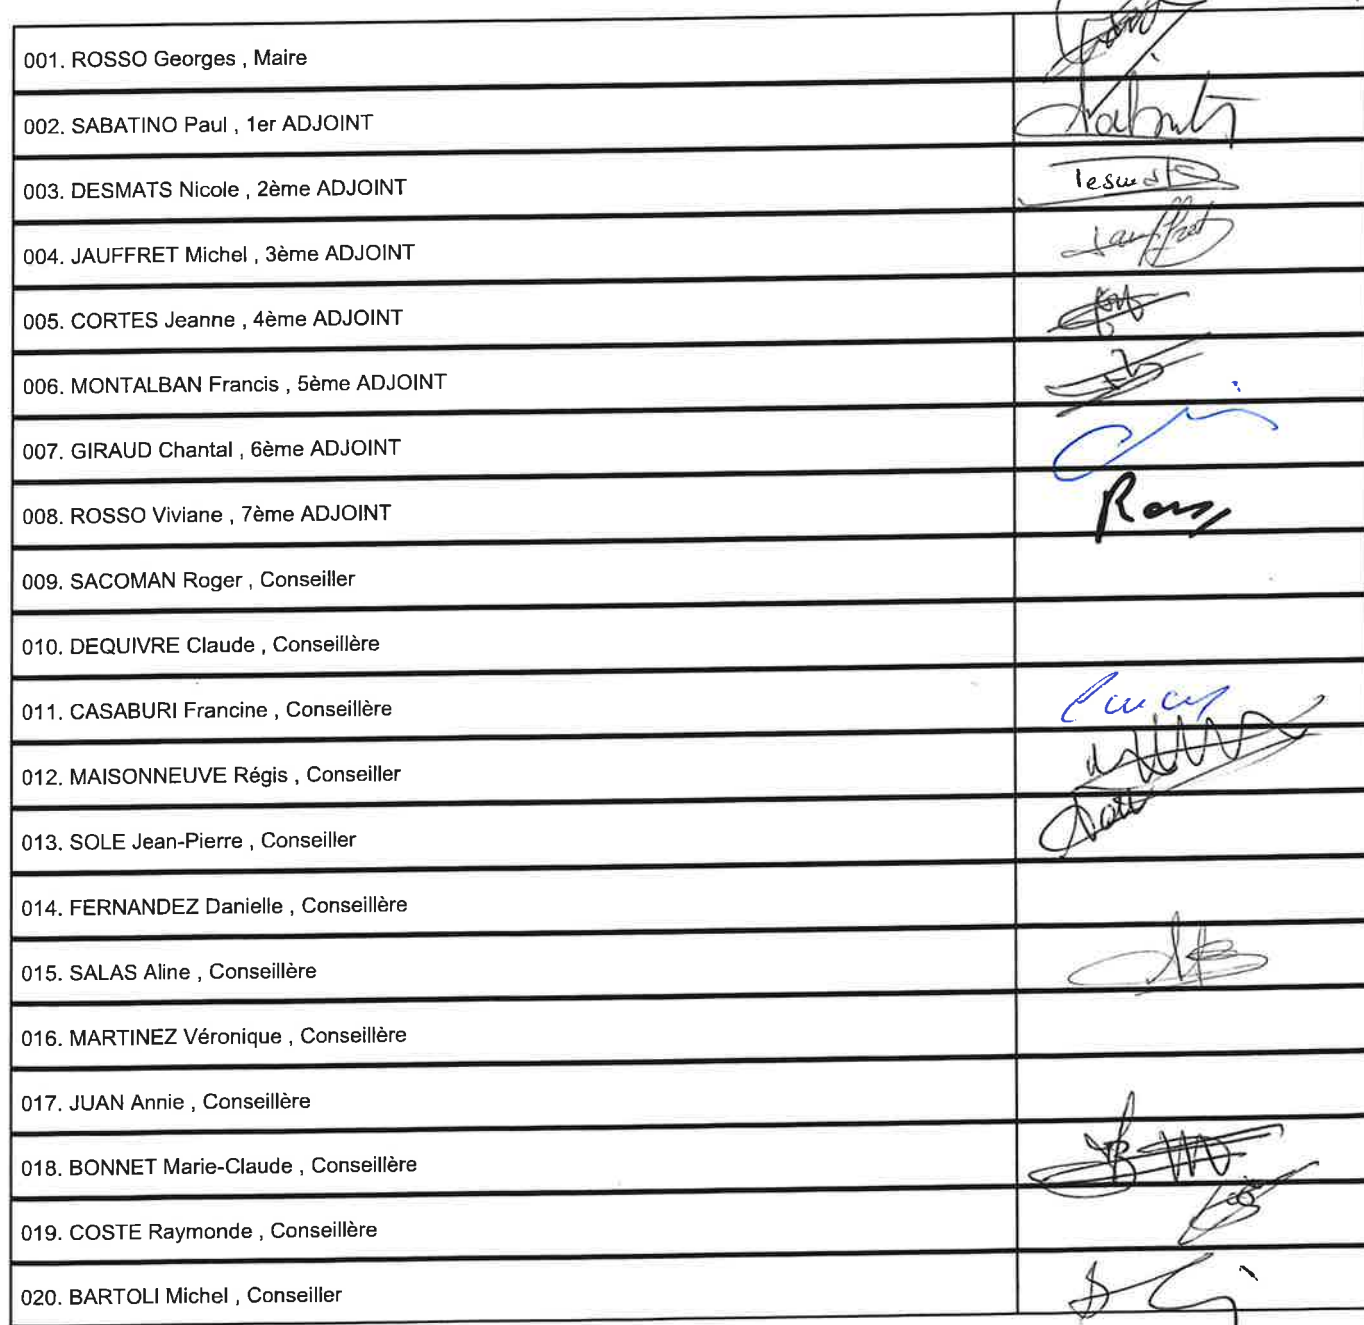 001. ROSSO Georges , Maire
002. SABATINO Paul , 1er ADJOINT
003. DESMATS Nicole , 2ème ADJOINT
004. JAUFFRET Michel , 3ème ADJOINT
Jauffret
005. CORTES Jeanne , 4ème ADJOINT
006. MONTALBAN Francis , 5ème ADJOINT
007. GIRAUD Chantal , 6ème ADJOINT
008. ROSSO Viviane , 7ème ADJOINT
009. SACOMAN Roger , Conseiller
010. DEQUIVRE Claude , Conseillère
011. CASABURI Francine , Conseillère
012. MAISONNEUVE Régis , Conseiller
013. SOLE Jean-Pierre , Conseiller
014. FERNANDEZ Danielle , Conseillère
015. SALAS Aline , Conseillère
016. MARTINEZ Véronique , Conseillère
017. JUAN Annie , Conseillère
018. BONNET Marie-Claude , Conseillère
019. COSTE Raymonde , Conseillère
020. BARTOLI Michel , Conseiller